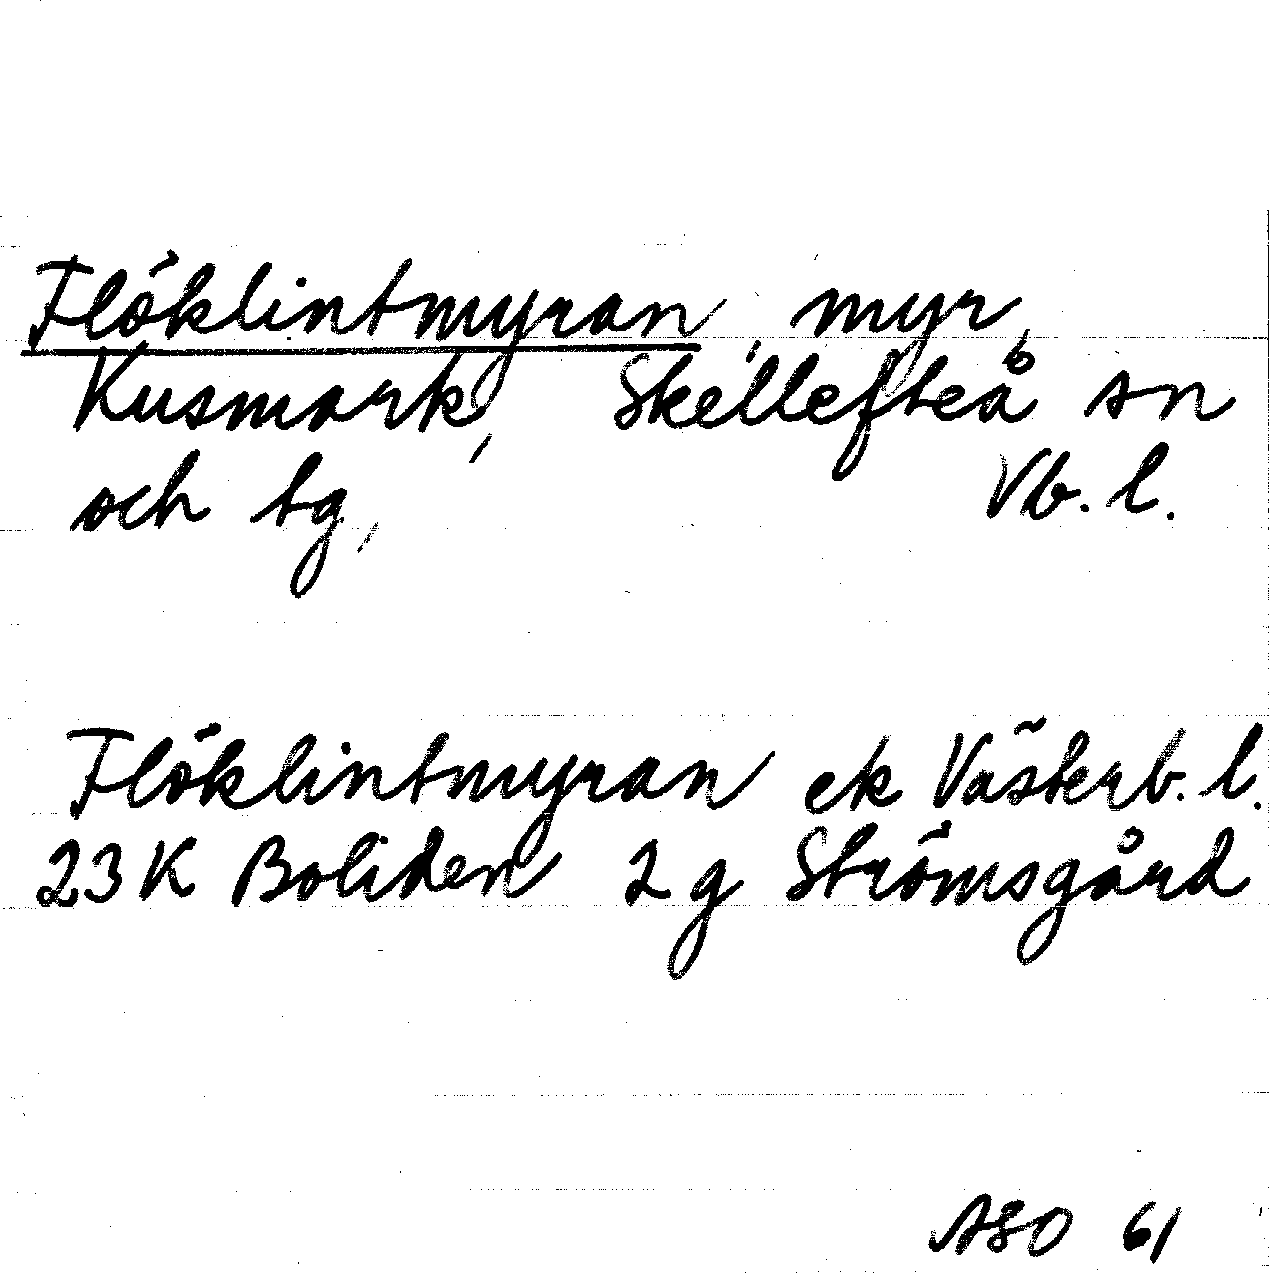 Flöklintmyran, myr,
Kusmark, Skellefteå sn
och tg, Vb. l.
Flöklintmyran ek Västerb. l.
23K Boliden 2g Strömsgård
ASO 61